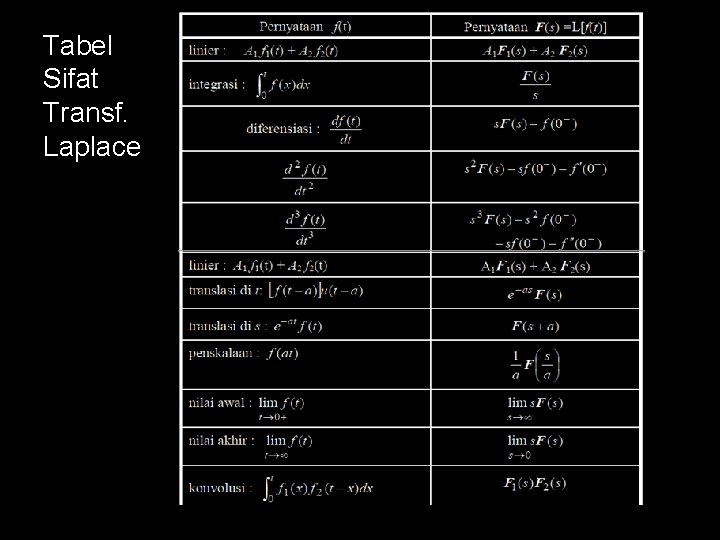 Tabel
Sifat
Transf.
Laplace
Pernyataan f(t) Pernyataan F(s) =L[f(t)]
linier : A₁ f₁(t) + A₂ f₂(t) A₁F₁(s) + A₂ F₂(s)
integrasi : ∫₀ᵗ f(x)dx F(s)/s
diferensiasi : df(t)/dt sF(s) – f(0⁻)
d²f(t)/dt² s²F(s) – sf(0⁻) – f′(0⁻)
d³f(t)/dt³ s³F(s) – s²f(0⁻)
– sf(0⁻) – f″(0⁻)
linier : A₁ f₁(t) + A₂ f₂(t) A₁F₁(s) + A₂ F₂(s)
translasi di t: [f(t–a)]u(t–a) e⁻ᵃˢF(s)
translasi di s : e⁻ᵃᵗ f(t) F(s + a)
penskalaan : f(at) 1/a F(s/a)
nilai awal : lim t→0+ f(t) lim s→∞ sF(s)
nilai akhir : lim t→∞ f(t) lim s→0 sF(s)
konvolusi : ∫₀ᵗ f₁(x)f₂(t–x)dx F₁(s)F₂(s)